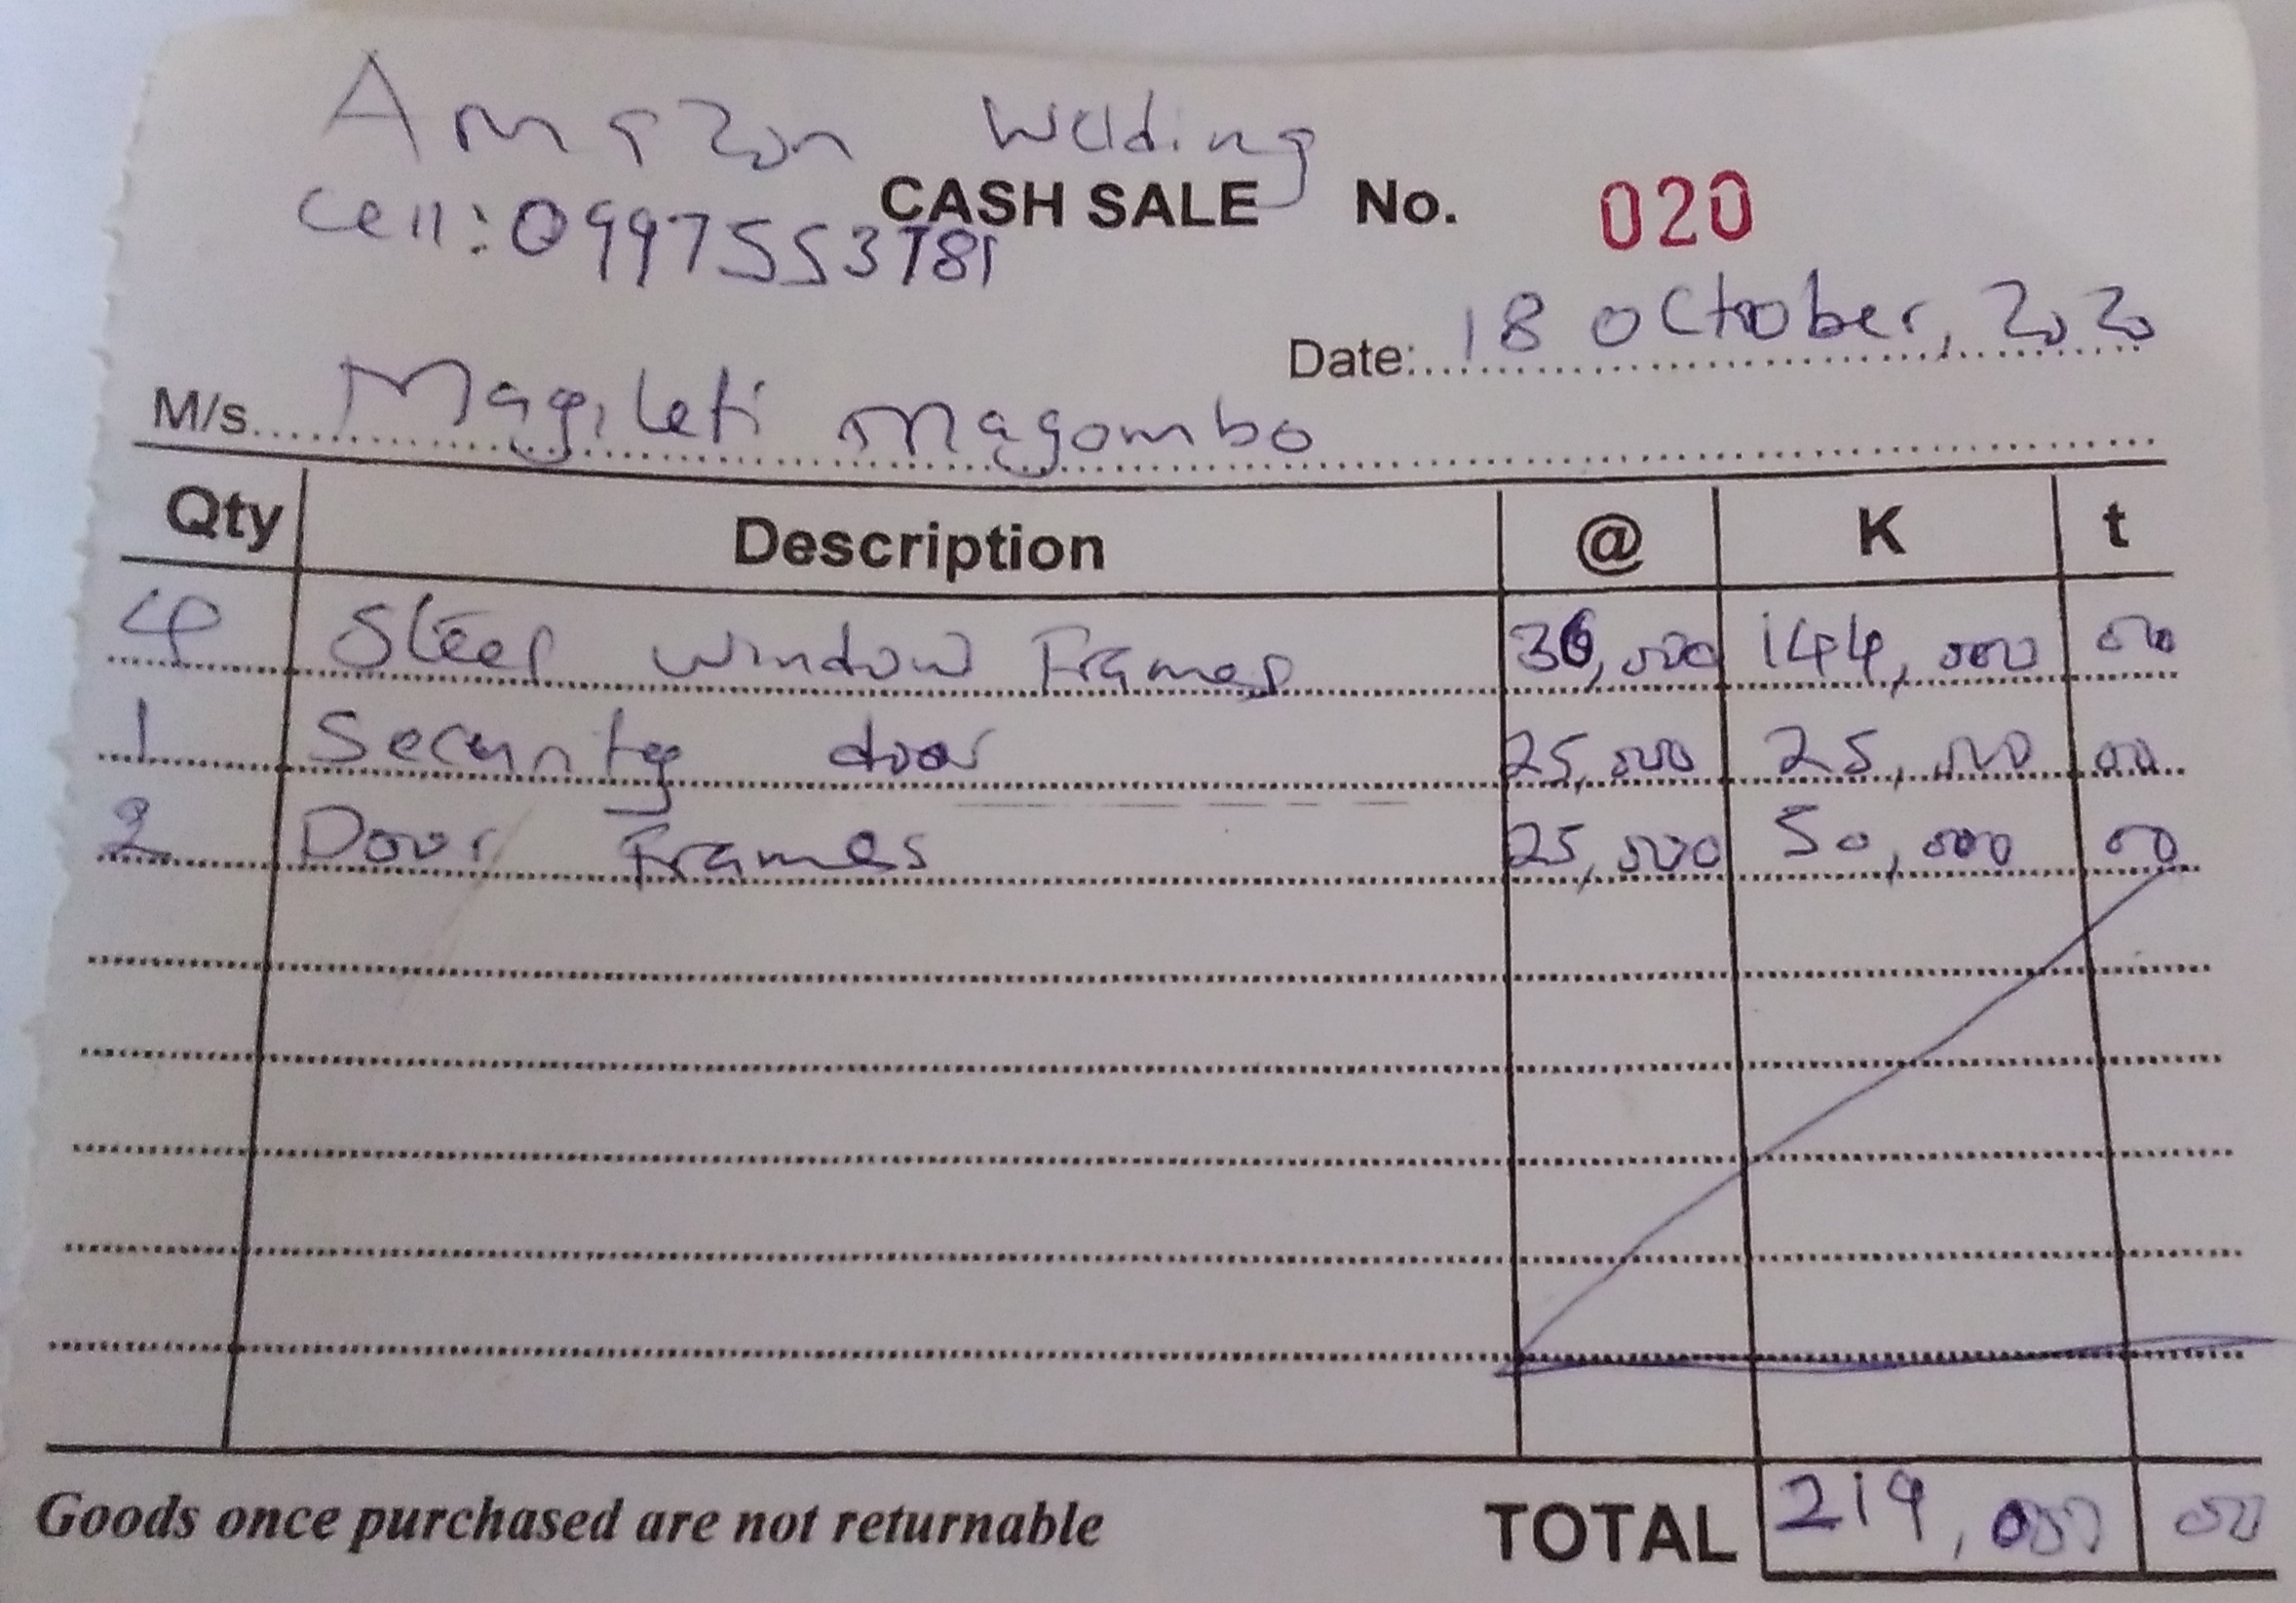 Amazon Welding
CASH SALE No. 020
Cell: 0997553781
Date: 18 October, 2020
M/s. Magileti Magombo
Qty Description @ K t
4 Steel window Frames 36,000 144,000 00
1 Security door 25,000 25,000 00
2 Door Frames 25,000 50,000 00
Goods once purchased are not returnable TOTAL 219,000 00